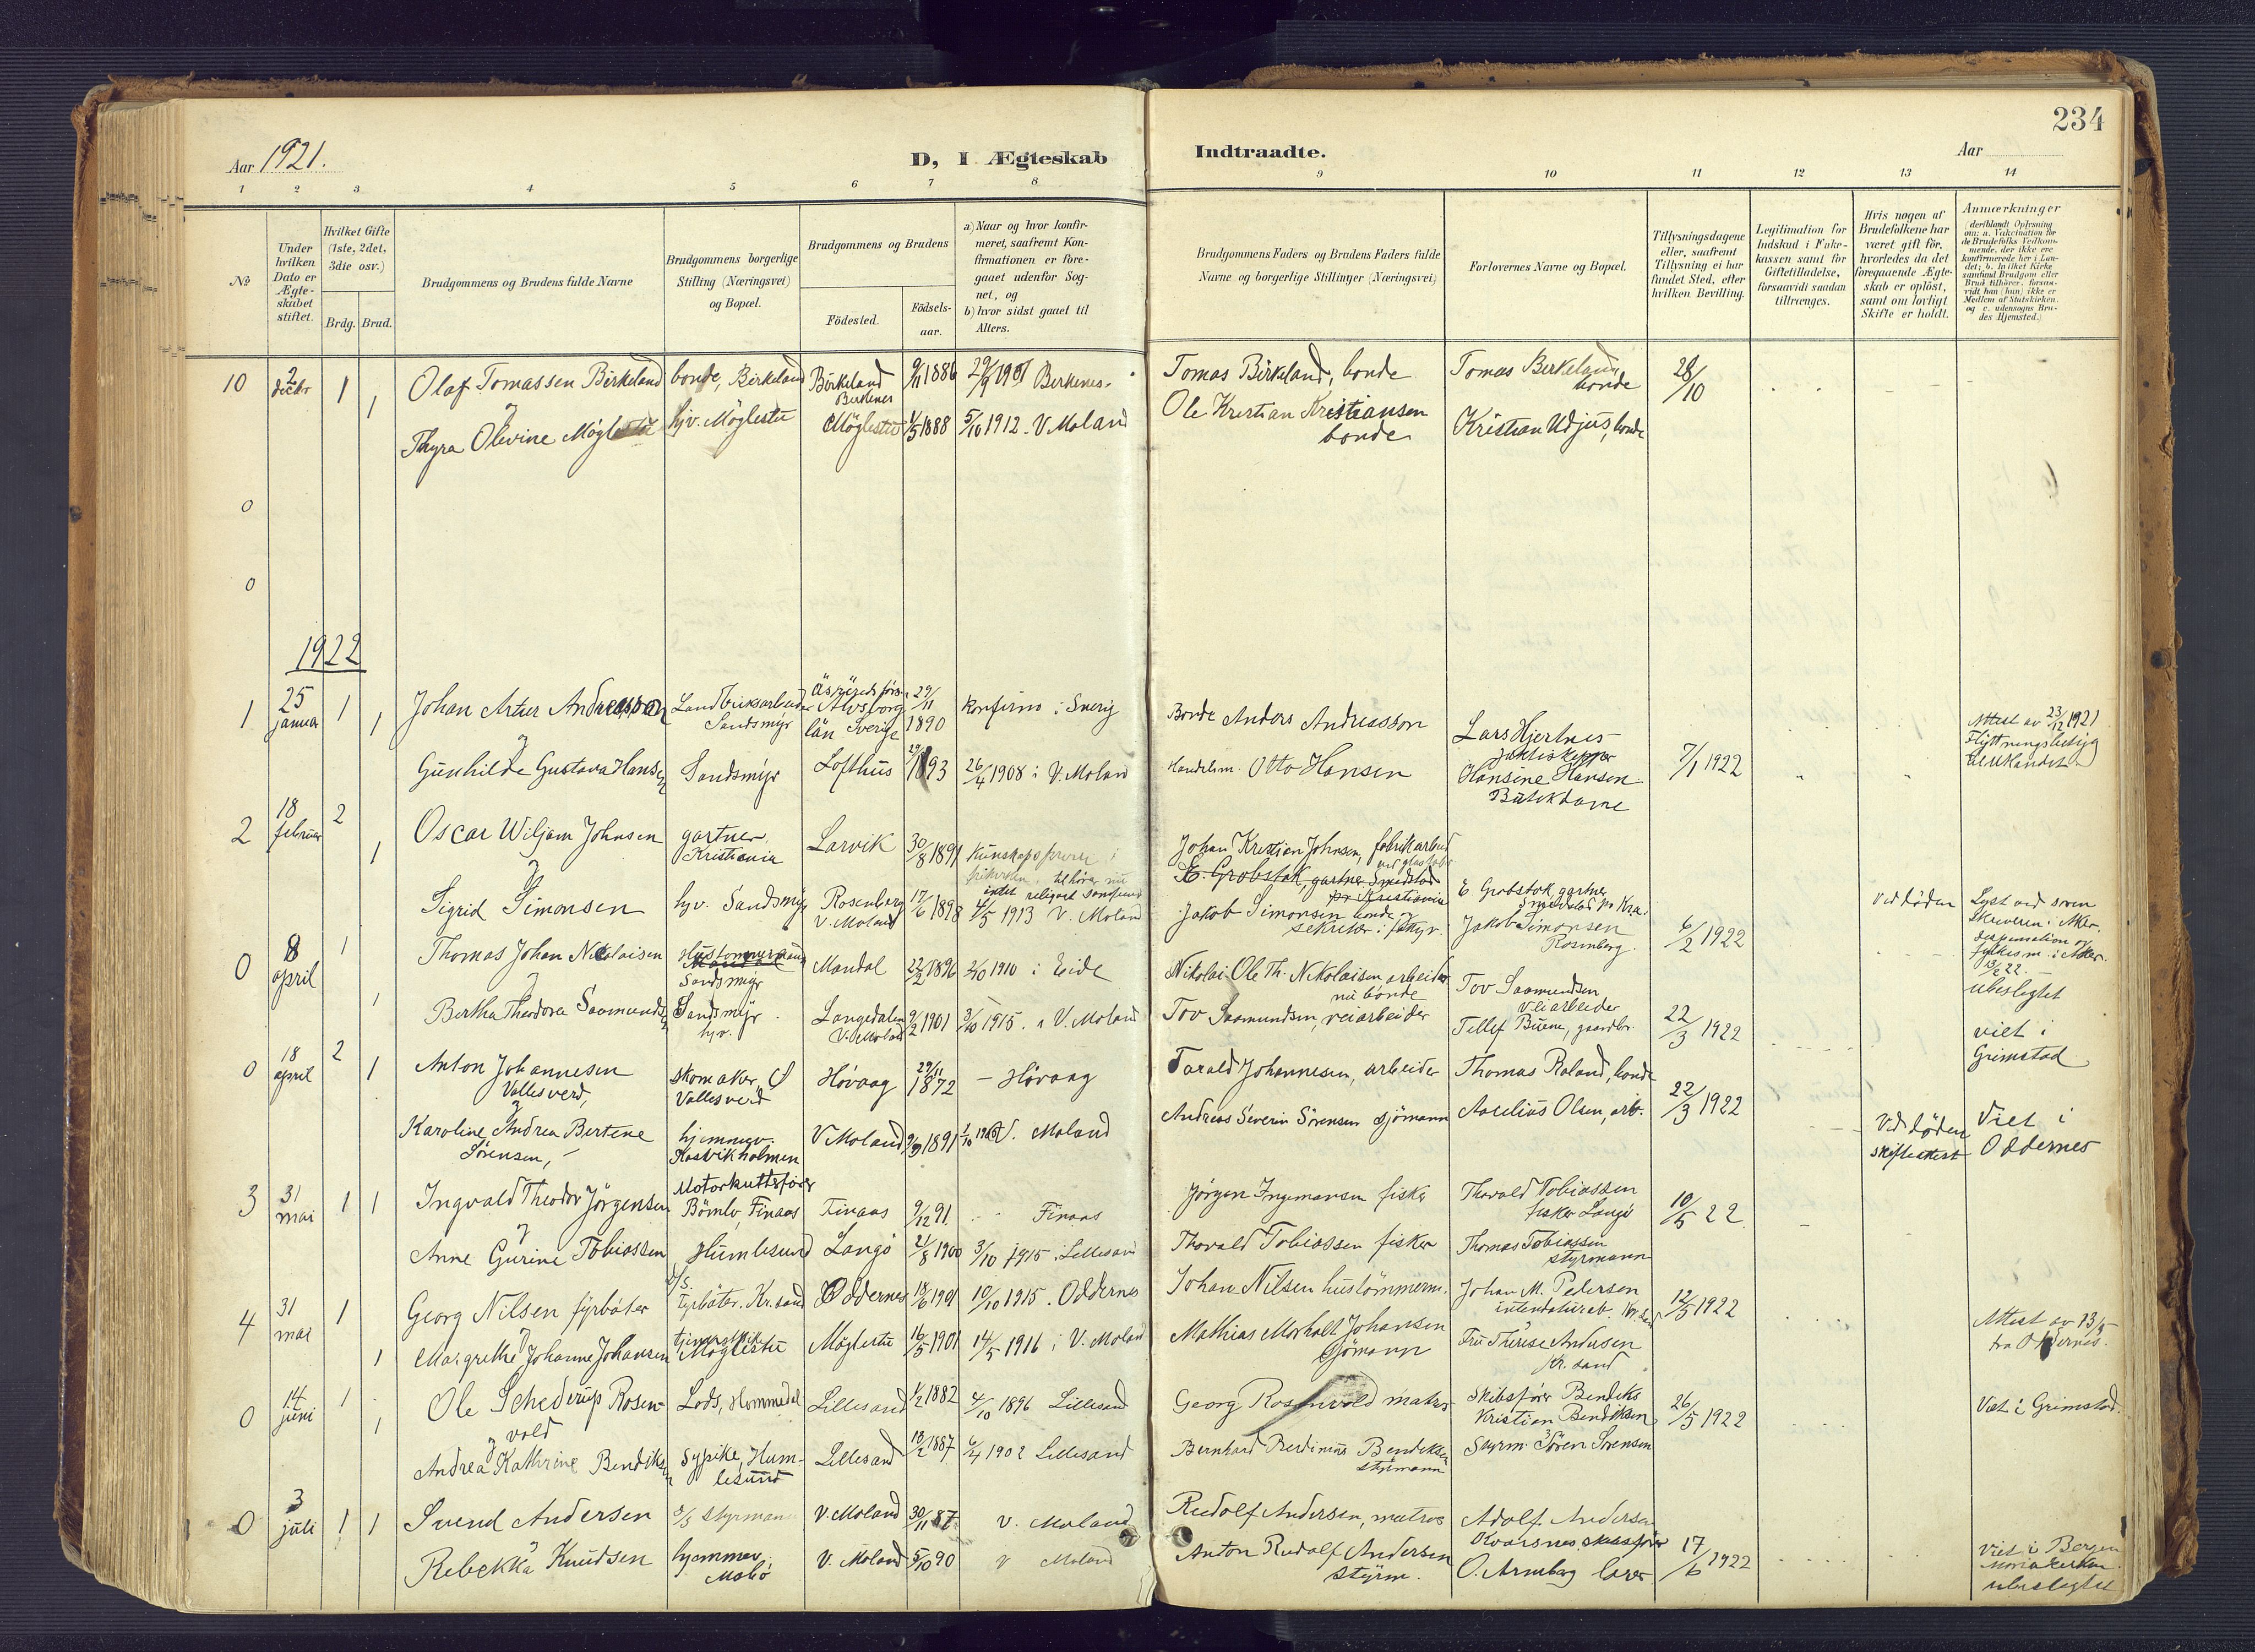 234
Aar 1921.
D, I Ægteskab
Indtraadte.
Aar
1 2 3 4 5 6 7 8 9 10 11 12 13 14
№
Under hvilken Dato er Ægteskabet stiftet.
Hvilket Gifte (1ste, 2det, 3die osv.)
Brdg. Brud.
Brudgommens og Brudens fulde Navne
Brudgommens borgerlige Stilling (Næringsvei) og Bopæl.
Brudgommens og Brudens
Födested.
Födselsaar.
a) Naar og hvor konfirmeret, saafremt Konfirmationen er foregaaet udenfor Sognet, og
b) hvor sidst gaaet til Alters.
Brudgommens Faders og Brudens Faders fulde Navne og borgerlige Stillinger (Næringsvei)
Forlovernes Navne og Bopæl.
Tillysningsdagene eller, saafremt Tillysning ei har fundet Sted, efter hvilken Bevilling.
Legitimation for Indskud i Enkekassen samt for Giftetilladelse, forsaavidt saadan tiltrænges.
Hvis nogen af Brudefolkene har været gift för, hvorledes da det foregaaende Ægteskab er oplöst, samt om lovligt Skifte er holdt.
Anmærkninger
(deriblandt Oplysning om: a. Vakcination for de Brudefolks Vedkommende, der ikke ere konfirmerede her i Landet; b. hvilket Kirkesamfund Brudgom eller Brud tilhörer, forsaavidt han (hun) ikke er Medlem af Statskirken, og c. udensogns Brudes Hjemsted.)
10 2 decbr 1 Olaf Tomassen Birkeland bonde, Birkeland Birkeland Berkenes 9/11 1886 29/9 1901 Berkenes. Tomas Birkeland, bonde Tomas Birkeland bonde 28/10
1 og Thyra Olevine Møglestu hjv. Møglestu Møglestu 1/5 1888 5/10 1912 - V. Moland Ole Kristian Kristiansen bonde Kristian Udjus, bonde
0
0
1922
1 25 januar 1 Johan Artur Andreasson Landbruksarbeider Sandsmyr Alvsborg län Sverige 29/11 1890 konfirm i Sverig Bonde Anders Andreasson Lars Hjertnes jaktskipper Attest av 23/12 1921
1 og Gunhilde Gustava Hansen Sandsmyr Lofthus 1893 26/4 1908 i V. Moland Handelsm. Otto Hansen Hansine Hansen Butikdame 7/1 1922
2 18 februar 2 Oscar Wiljam Johnsen gartner Kristiania Larvik 30/8 1891 tilhører nu intet religiøst samfund Johan Kristian Johnsen, fabrikarbeid
E. Grobstok, gartner Smedstad pr Kristiania E Grobstok gartner Smedstad pr Kra. Ved döden
1 og Sigrid Simonsen hjv. Sandsmyr Rosenberg V. Moland 17/6 1898 4/5 1913 V. Moland Jakob Simonsen bonde Jakob Simonsen Rosenberg. 6/2 1922 Lyst ved soren skriveren i Aker. dispensation
ubeslegtet
0 8 april 1 Thomas Johan Nicolaisen Hustømmermand Sandsmyr Mandal 22/2 1896 2/10 1910 i Eide Nikolai Ole Th. Nikolaisen arbeider nu bonde Tov Saamundsen veiarbeider
1 og Bertha Theodora Saamundsen Sandsmyr hjv. Langedalen V. Moland 9/2 1901 3/10 1915. i V. Moland Tov Saamundsen, veiarbeider Tellef Buene, gaardbr. 22/3 1922 viet i Grimstad
0 18 april 2 1 Anton Johannesen Vallesverd, skomaker Vallesverd Høvaag 29/11 1872 - Høvaag Tarald Johannesen, arbeider Thomas Roland, bonde 22/3 1922
og Karoline Andrea Bertene Sørensen, hjemmev. Kosvikholmen V Moland 9/9 1891 1/10 1906 V. Moland Andreas Severin Sörensen sjömann Aarelius Olsen, arb. Ved döden skifteattest Viet i Oddernes
3 31 mai 1 1 Ingvald Theodor Jörgensen Motorkutterfører Bömlo, Finaas Finaas 9/12 91 - Finaas Jörgen Ingemansen fisker Thorvald Tobiassen fisker Langö 10/5 22.
og Anne Gurine Tobiassen Humlesund Langö 21/8 1900 3/10 1915 i Lillesand Thorvald Tobiassen fisker Thomas Tobiassen styrmann
4 31 mai 1 Georg Nilsen fyrbøter d/s Fyrbøter. Kr.sand Oddernes 18/6 1901 10/10 1915. Oddernes Johan Nilsen hustömmerm. Johan M. Pedersen 12/5 1922
1 og Margrethe Johanne Johansen tjenestepike Møglestu Møglestu 16/5 1901 14/5 1916 i V. Moland Mathias Morholt Johansen sjömann Fru Therese Andersen Kr.sand Attest av 13/5 fra Oddernes.
0 14 juni 1 Ole Schederup Rosenvold Lods, Hommedal Lillesand 1/2 1882 4/10 1896 Lillesand Georg Rosenvold matros Skibsfører Bendiks Kristian Bendiksen 26/5 1922 Viet i Grimstad.
1 og Andrea Kathrine Bendiksen sypike, Humlesund Lillesand 18/2 1887 6/4 1902 Lillesand Bernhard Berdinius Bendiksen styrmann Styrm. Sören Sörensen
0 3 juli 1 1 Svend Andersen styrmann V. Moland 30/11 87 V. Moland Rudolf Andersen, matros Adolf Andersen
og Rebekka Knudsen hjemmev. Malö V. Moland 5/10 90 V Moland Anton Rudolf Andersen styrm. O. Armberg lærer 17/6 1922 Viet i Bergen Mariakirken ubeslegtet